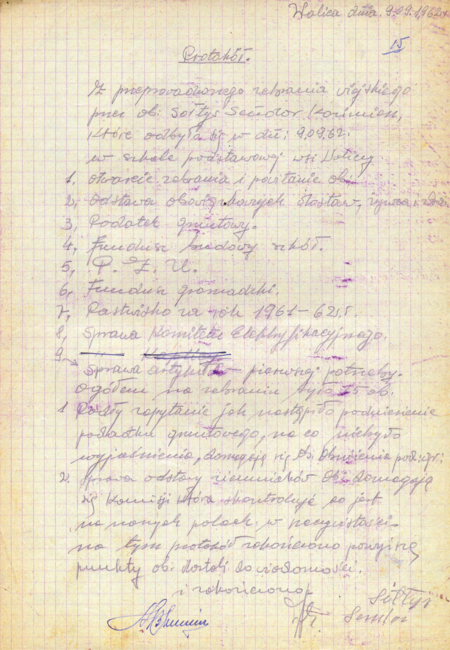 Wolica dnia 9.09.1962r.
15
Protokół.
Z przeprowadzonego zebrania wiejskiego
przez ob. Sołtys Sendor Kazimierz,
które odbyło się w dn: 9.09.62.
w szkole podstawowej wsi Wolicy
1, otwarcie zebrania i powitanie ob.
2, Odstawa obowiązkowych dostaw, żywca i
3, Podatek gruntowy.
4, Fundusz budowy szkół.
5, P. Z. U.
6, Fundusz gromadzki.
7, Pastwisko za rok 1961-62r.
8, Sprawa Komitetu Elektryfikacyjnego.
9
Sprawa artykułów pierwszej potrzeby.
ogółem na zebraniu było 15 ob.
1 Padły zapytanie jak nastąpiło podniesienie
podatku gruntowego, na co niebyło
wyjaśnienia, domagają się ob. obniżenia
2. Sprawa odstawy ziemniaków ob. domagają
się Komisji która skontroluje co jest
na naszych polach w rzeczywistości
na tym protokół zakończono powyższe
punkty ob. dostali do wiadomości.
i zakończono
Sołtys